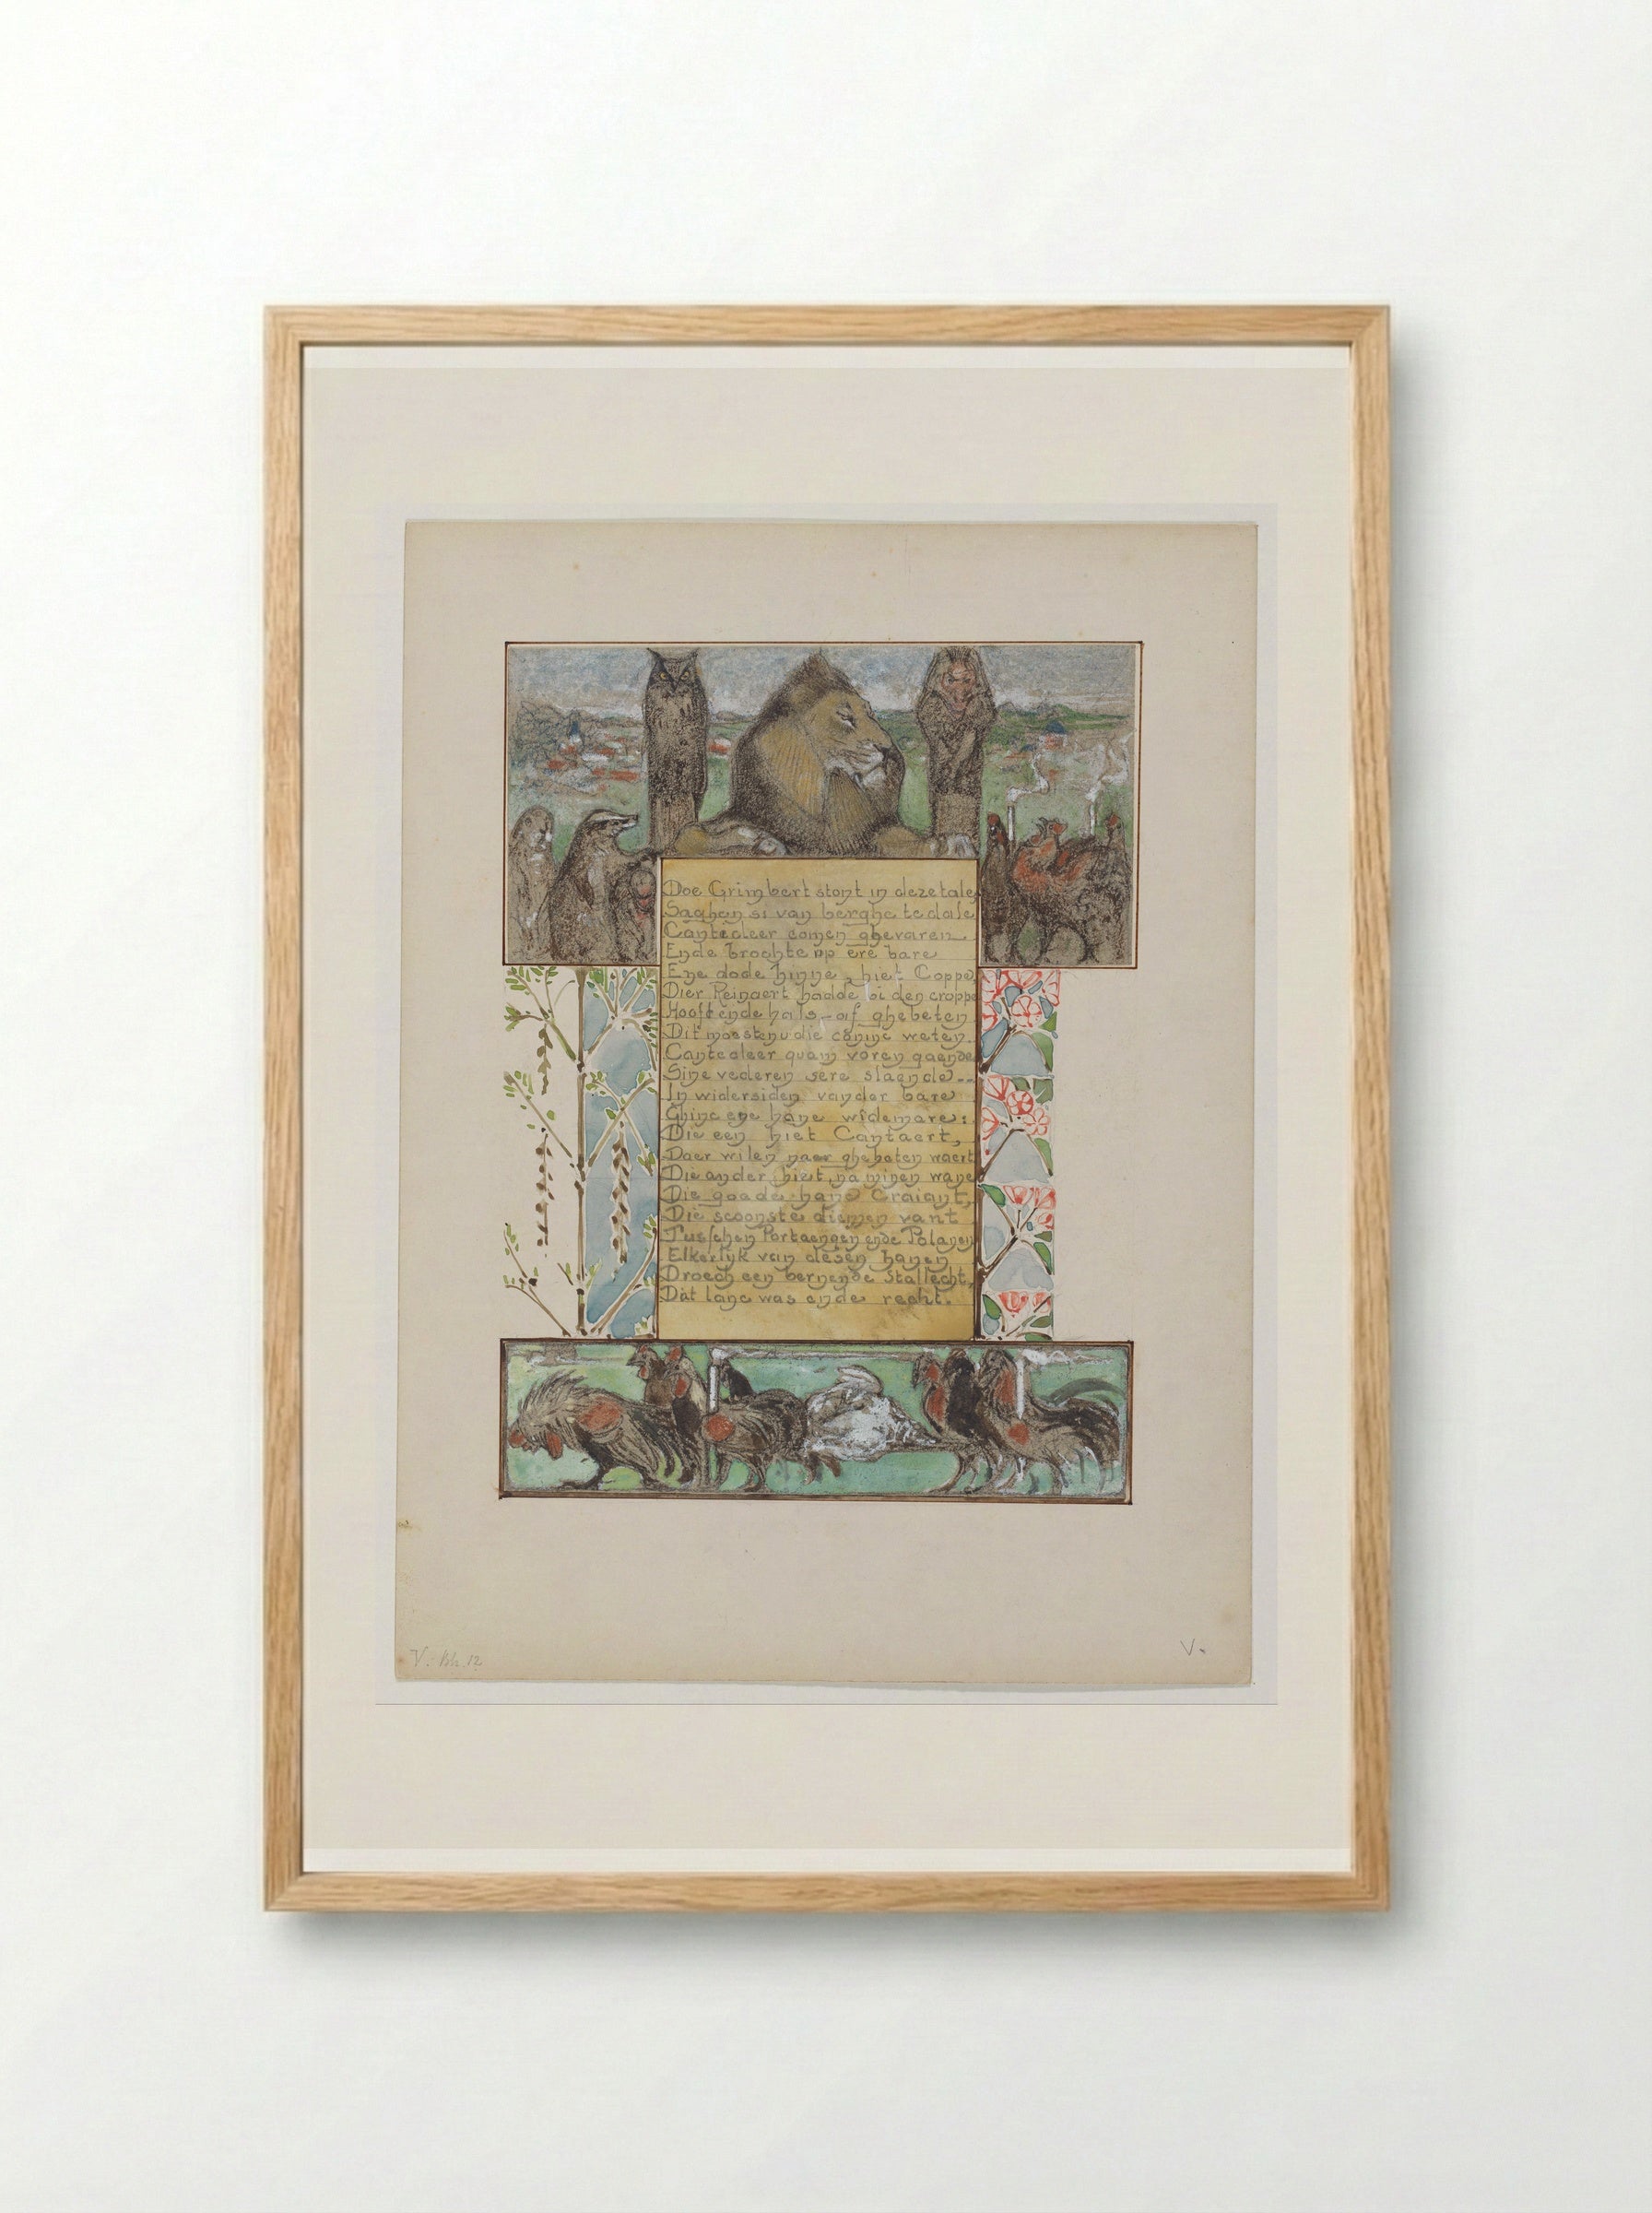 Doe Grimbert stont in deze tale
Saghen si van berghe te dale
Cantecleer comen ghevaren
Ende brochte op ere bare
Ene dode hinne, hiet Coppe
Dier Reinaert hadde bi den croppe
Hooft ende hals af ghebeten
Dit moesten die coninc weten.
Cantecleer quam voren gaende
Sine vederen sere slaende--
In widersiden vander bare
Ghinc ene hane widemare:
Die een hiet Cantaert,
Daer wilen naer ghebeten waert
Die ander hiet, na minen wane
Die goade hane Craiant,
Die scoonste diemen vant
Tusschen Portaengen ende Polanen
Elkerlyk van desen hanen
Droech een bernende Stallecht,
Dat lanc was ende recht.
V. 12
V.